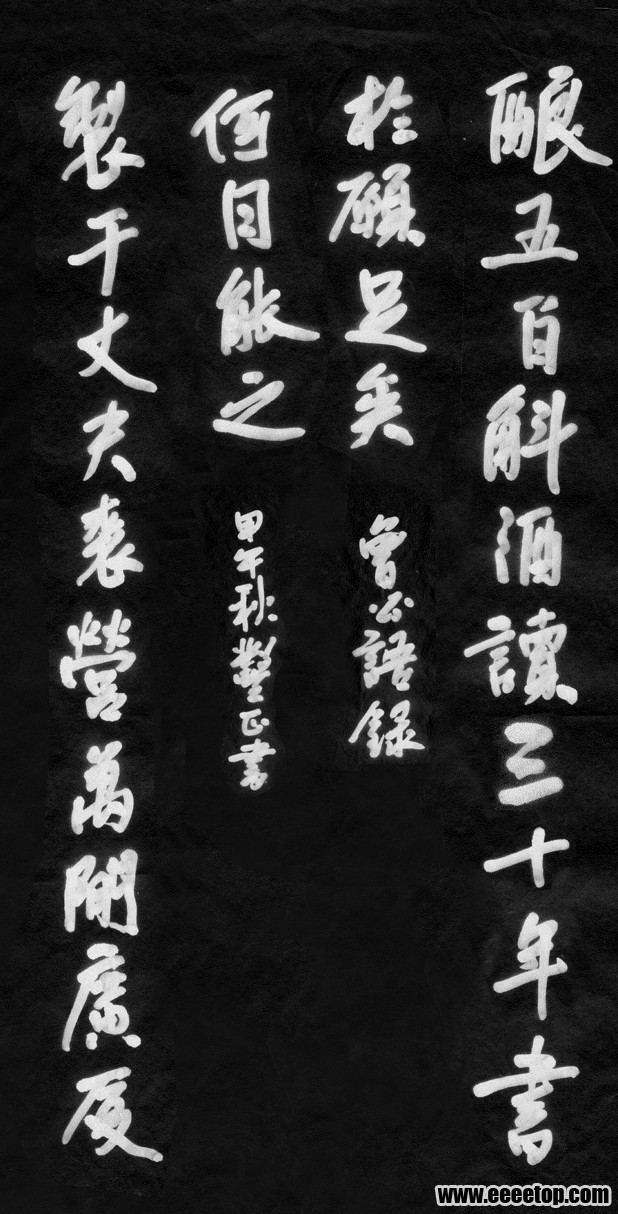 酿五百斛酒讀三十年書
於願足矣
曾公語錄
製千丈大裘營萬間廣厦
何日能之
甲午秋正書
www.eeeetop.com